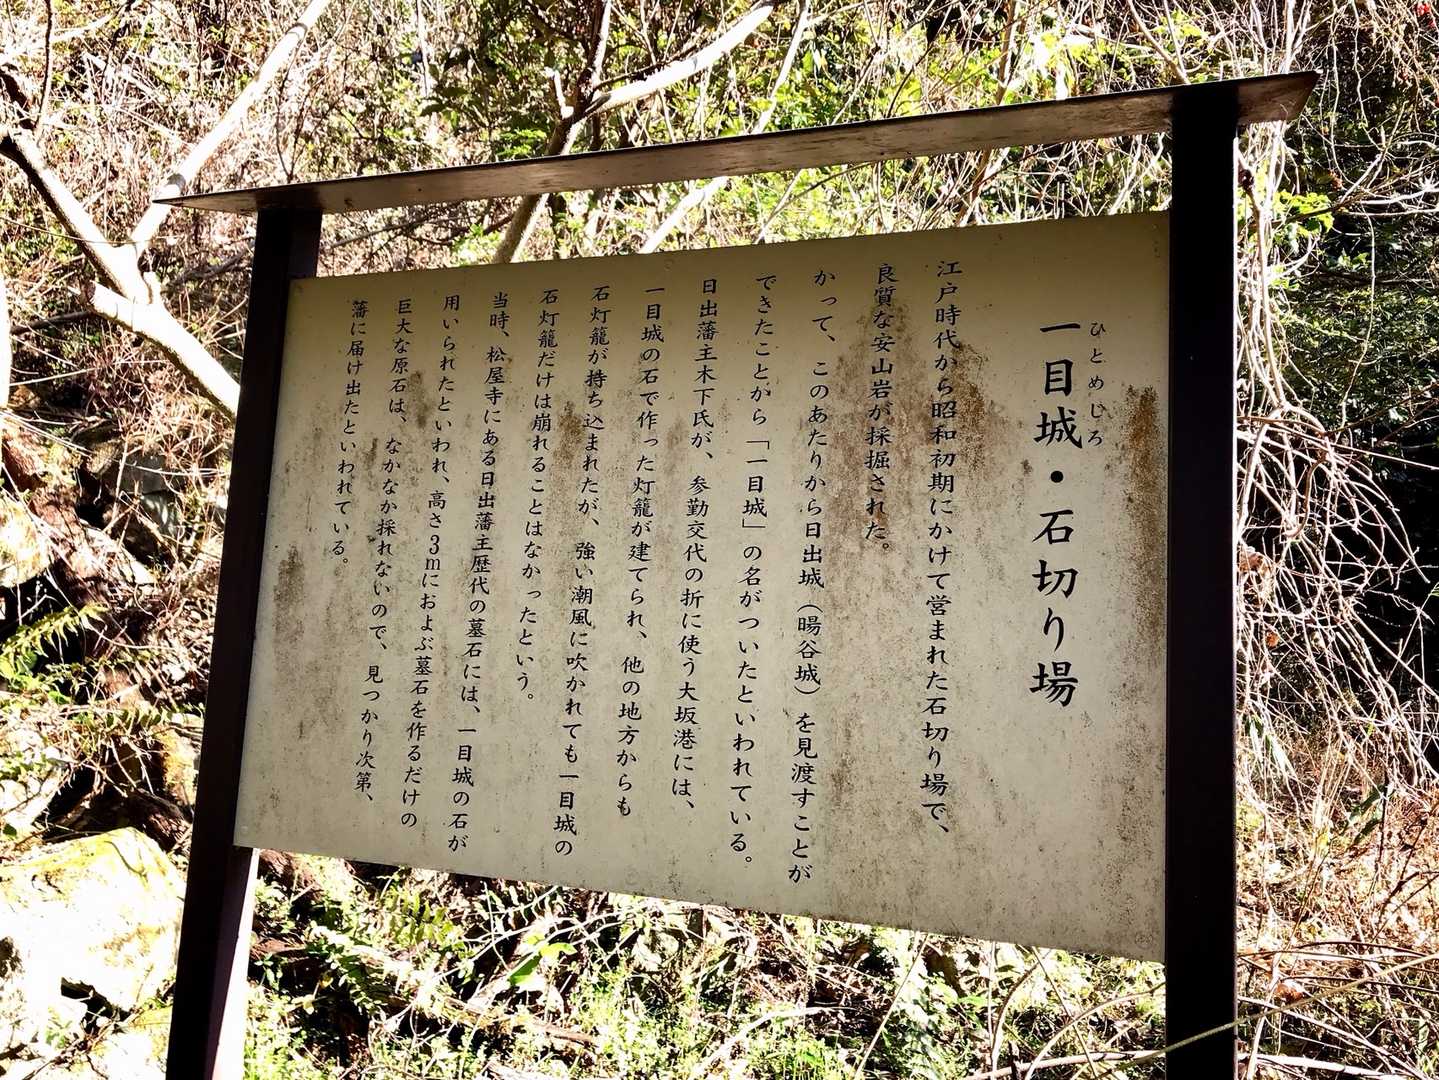 ひとめじろ
一目城・石切り場
江戸時代から昭和初期にかけて営まれた石切り場で、
良質な安山岩が採掘された。
かって、このあたりから日出城（暘谷城）を見渡すことが
できたことから「一目城」の名がついたといわれている。
日出藩主木下氏が、参勤交代の折に使う大坂港には、
一目城の石で作った灯籠が建てられ、他の地方からも
石灯籠が持ち込まれたが、強い潮風に吹かれても一目城の
石灯籠だけは崩れることはなかったという。
当時、松屋寺にある日出藩主歴代の墓石には、一目城の石が
用いられたといわれ、高さ3mにおよぶ墓石を作るだけの
巨大な原石は、なかなか採れないので、見つかり次第、
藩に届け出たといわれている。